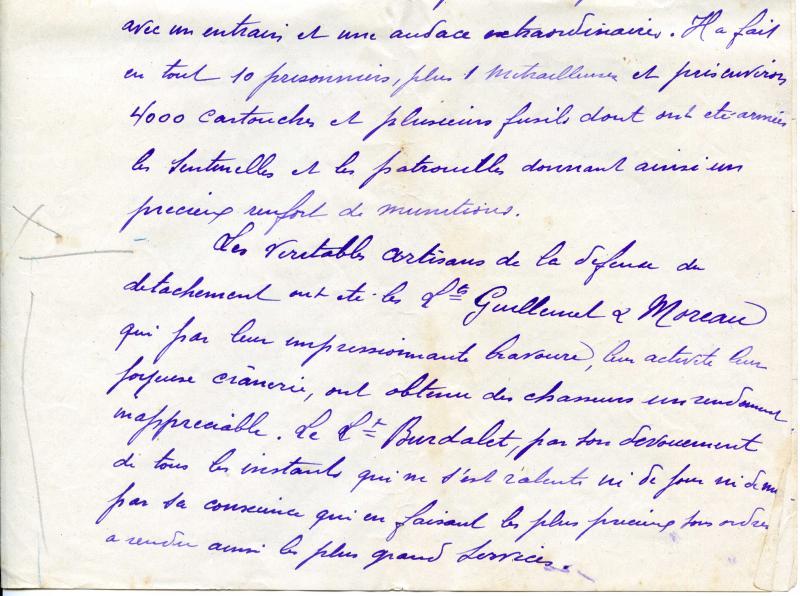 avec un entrain et une audace extraordinaires. Il a fait
en tout 10 prisonniers, plus 1 mitrailleuse et pris environ
4000 cartouches et plusieurs fusils dont ont eté armées
les sentinelles et les patrouilles donnant ainsi un
precieux renfort de munitions.
Les veritables artisans de la defense du
detachement ont eté les Lts Guillemet & Moreau
qui par leur impressionnante bravoure, leur activité leur
joyeuse crânerie, ont obtenu des chasseurs un rendement
inappreciable. Le Lt Burdalet, par son devouement
de tous les instants qui ne s'est ralenti ni de jour ni de
par sa conscience qui en faisant les plus precieux ordres
a rendu ainsi les plus grand services.